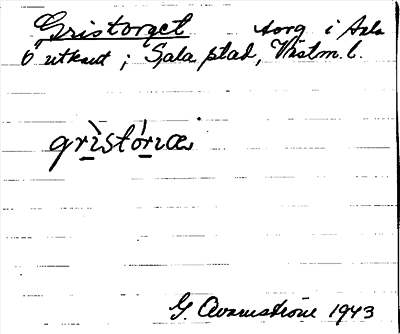 Gristorget torg i Sala
ö utkant i Sala stad, Västm. l.
grìstórıæ
G. Avamström 1943